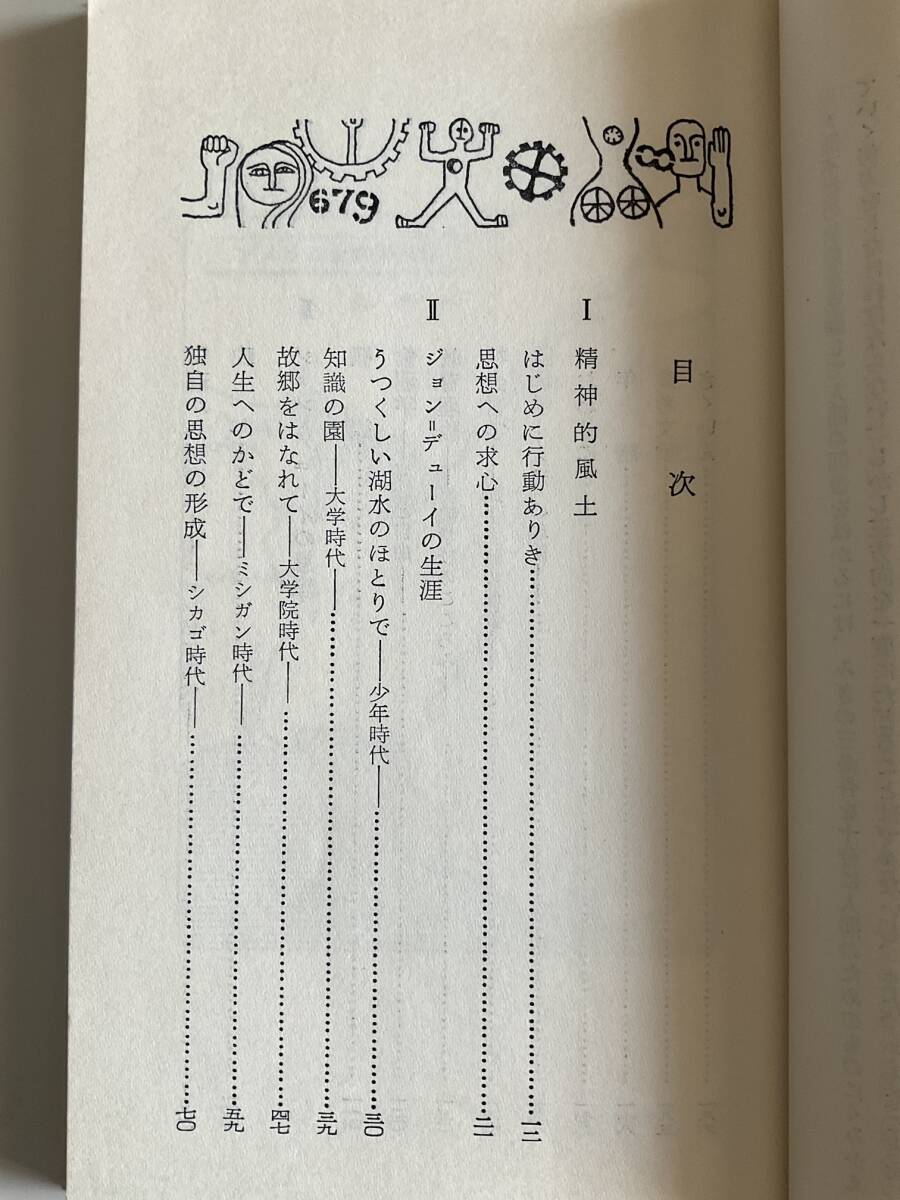 679
目次
Ⅰ 精神的風土
はじめに行動ありき……一二
思想への求心……二一
Ⅱ ジョン=デューイの生涯
うつくしい湖水のほとりで――少年時代――……三〇
知識の園――大学時代――……三九
故郷をはなれて――大学院時代――……四七
人生へのかどで――ミシガン時代――……五九
独自の思想の形成――シカゴ時代――……七〇